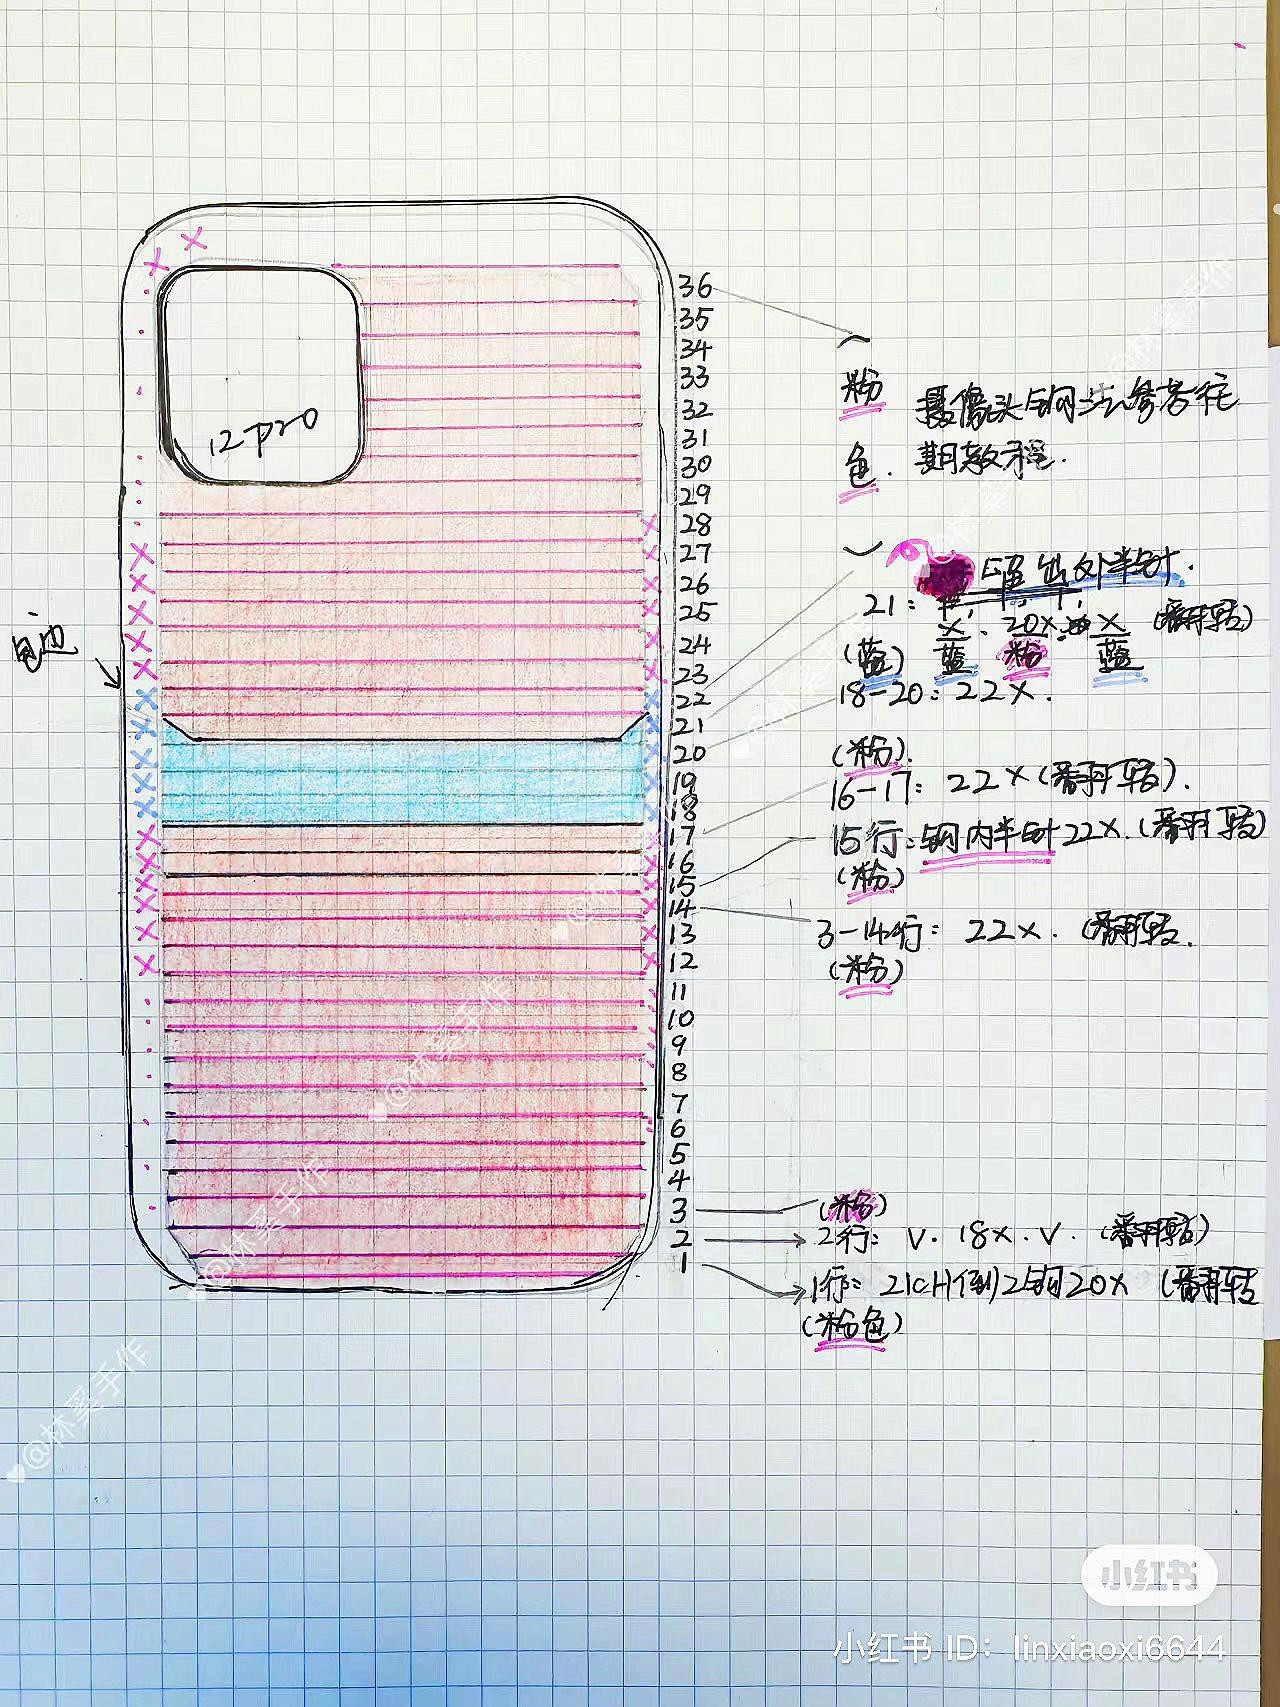 12 pro
包边
36
35
34
33
32
31
30
29
28
27
26
25
24
23
22
21
20
19
18
17
16
15
14
13
12
11
10
9
8
7
6
5
4
3
2
1
粉色. 摄像头钩法参考往
期教程.
留出外半针.
21: X. 20X. X (翻转)
(蓝) 蓝 粉 蓝
18-20: 22X.
(粉).
16-17: 22X (翻转).
15行: 钩内半针22X. (翻转)
(粉)
3-14行: 22X. (翻转.
(粉)
(粉)
2行: V. 18X. V. (翻转)
1行: 21CH倒2钩20X (翻转
(粉色)
@林奚手作
@林奚手作
@林奚手作
@林奚手作
小红书
小红书 ID: linxiaoxi6644